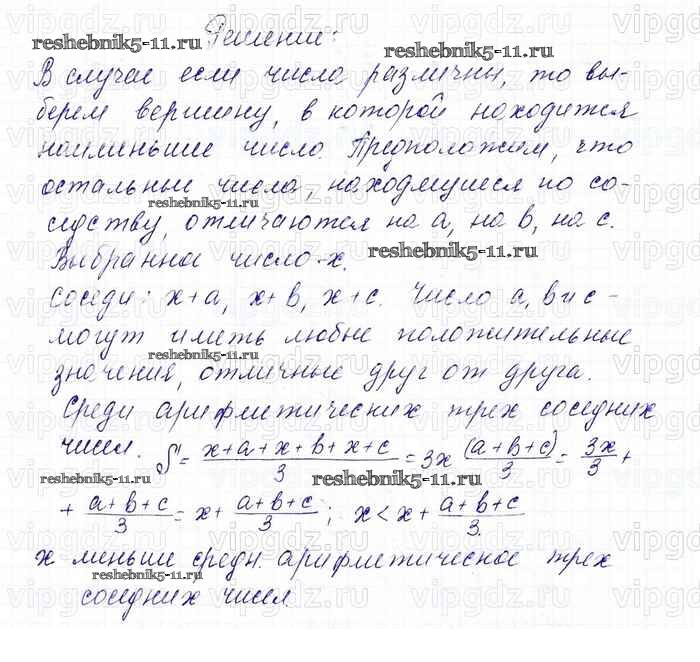 Решение:
В случае если числа различны, то вы-
берем вершину, в которой находится
наименьшее число. Предположем, что
остальные числа, находящиеся по со-
седству, отличаются на a, на b, на c.
Выбранное число-x.
Соседи: x+a, x+b, x+c. Числа a, b и c -
могут иметь любые положительные
значения, отличные друг от друга.
Средн арифметических трех соседних
чисел. S = (x+a+x+b+x+c)/3 = 3x (a+b+c)/3 = 3x/3 +
+ (a+b+c)/3 = x + (a+b+c)/3; x < x + (a+b+c)/3.
x меньше средн. арифметическое трех
соседних чисел
reshebnik5-11.ru
reshebnik5-11.ru
reshebnik5-11.ru
reshebnik5-11.ru
reshebnik5-11.ru
reshebnik5-11.ru
reshebnik5-11.ru
vipgdz.ru